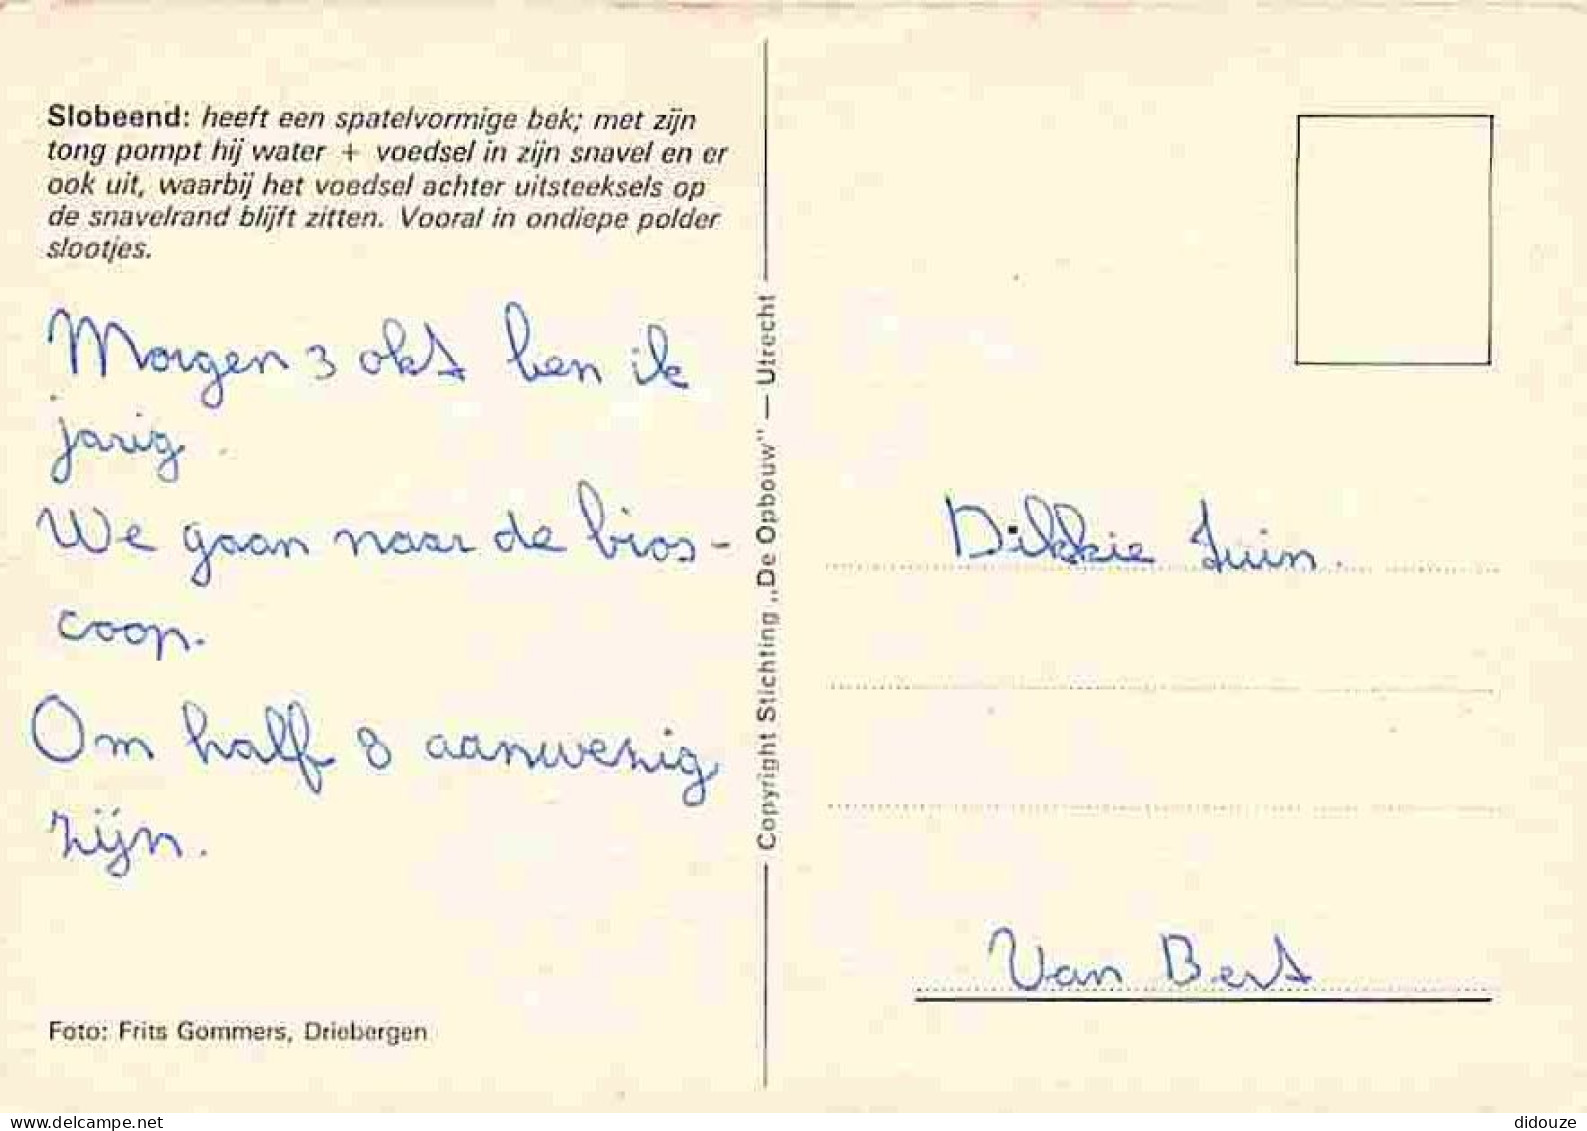 Slobeend: heeft een spatelvormige bek; met zijn
tong pompt hij water + voedsel in zijn snavel en er
ook uit, waarbij het voedsel achter uitsteeksels op
de snavelrand blijft zitten. Vooral in ondiepe polder
slootjes.
Morgen 3 okt ben ik
jarig.
We gaan naar de bios-
coop.
Om half 8 aanwezig
zijn.
Foto: Frits Gommers, Driebergen
Copyright Stichting „De Opbouw" — Utrecht
Dikkie Juin.
Van Bert
delcampe.net
didouze